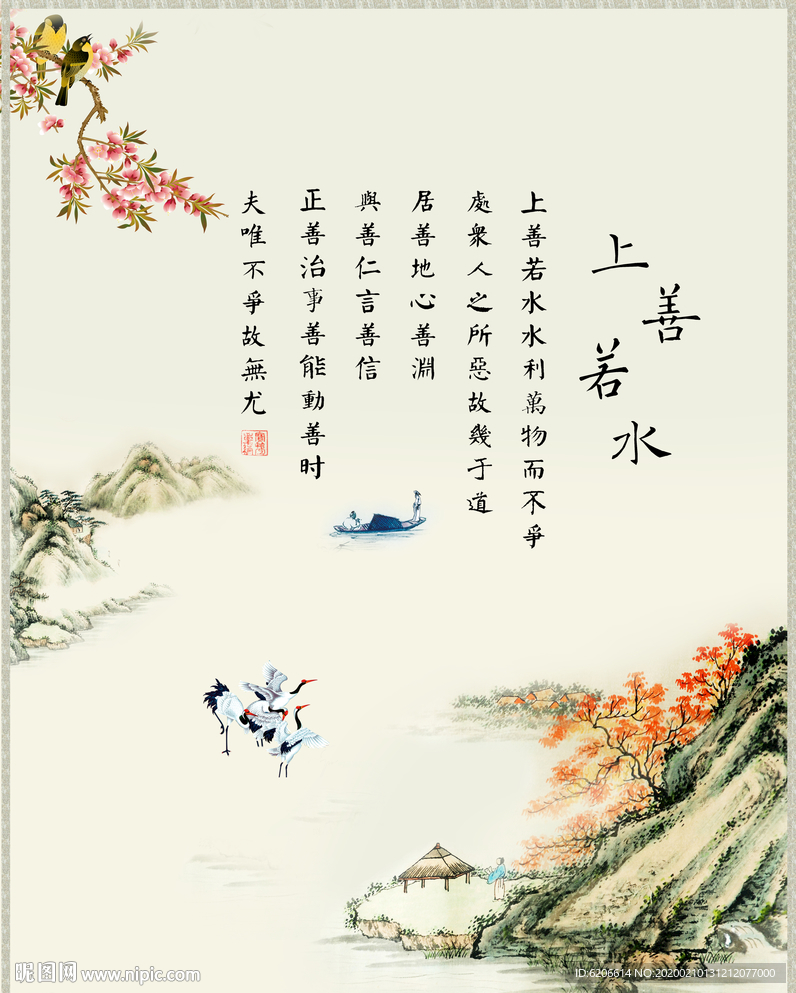 上
善
若
水
上善若水水利萬物而不爭
處衆人之所惡故幾于道
居善地心善淵
與善仁言善信
正善治事善能動善时
夫唯不爭故無尤
昵图网 www.nipic.com
ID:6206614 NO:20200210131212077000